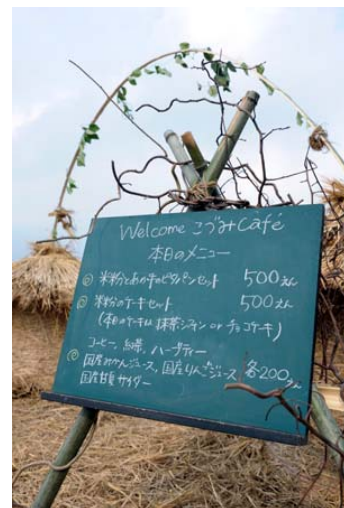 Welcome こづみ Café
本日のメニュー
◎ 米粉とあか牛のピタパンセット 500えん
◎ 米粉のケーキセット 500えん
(本日のケーキは 抹茶シフォン or チョコケーキ)
◎ コーヒー、紅茶、ハーブティー
国産みかんジュース、国産りんごジュース 各200えん
国産 サイダー